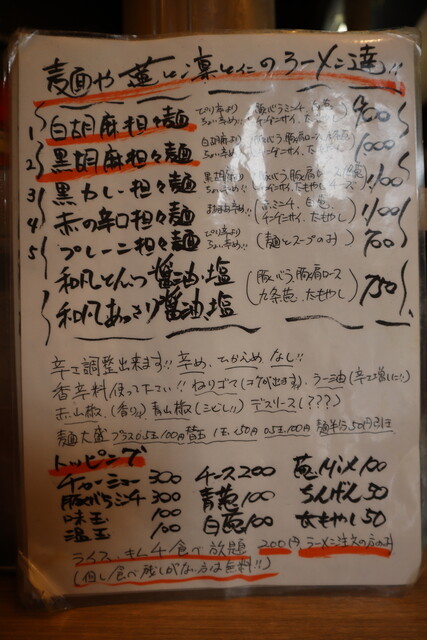 麺や蓮と凛と仁のラーメン達!!
1 白胡麻担々麺 ピリ辛より ちょい辛め!! 900
2 黒胡麻担々麺 白胡麻より ちょい辛め!! 1000
3 黒カレー担々麺 黒胡麻より 1100
4 赤の辛口担々麺 1100
5 プレーン担々麺 ピリ辛より ちょい辛め!! (麺とスープのみ) 700
和風とんこつ醤油、塩
和風あっさり醤油、塩
(豚バラ、豚肩ロース 九条葱、大もやし) 750
辛さ調整出来ます!! 辛め、ひかえめ なし!!
香辛料使って下さい!! ねりゴマ(コクが出ます)、ラー油(辛さ増しに!!)
赤山椒、(香り)、青山椒(シビレ!!) デスソース(???)
麺大盛 プラス0.5玉100円 替玉 1玉150円 0.5玉100円 麺半分50円引き
トッピング
チャーシュー 300 チーズ 200 葱、MIX 100
豚バラミンチ 300 青葱 100 ちんげん 50
味玉 100 白葱 100 大もやし 50
温玉 100
ライス、キムチ食べ放題 200円 ラーメン注文の方のみ
(但し食べ残しがない方は無料!!)